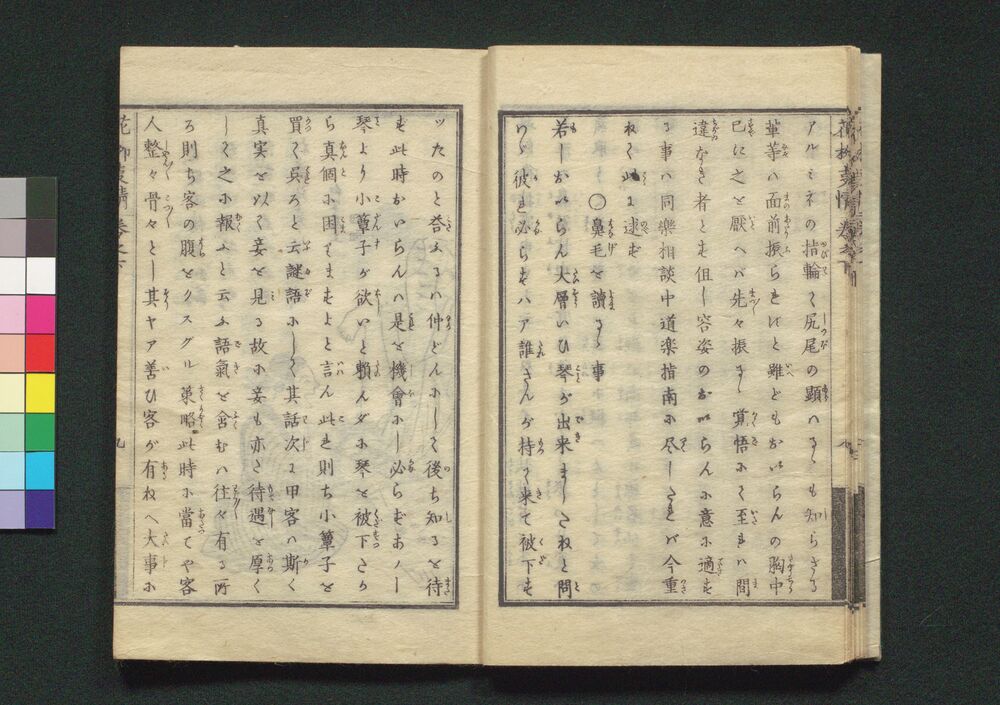 アルミネの指輪く尻尾の顕ハるゝも知らざる
輩等ハ面前振らるゝと雖どもおいらんの胸中
已に之を厭へバ先々振るゝ算悟にて至れハ間
違なき者とも但し容姿のおいらんに意に適も
る事ハ同樂相談中道楽指南に尽したれバ今重
ねて此に述も
〇鼻毛を讀るゝ事
若しおいらん大層いひ琴が出来ましたねと問
ハゞ彼れ必らもハア誰さんが持て来て被下も
ッたのと答ふるハ仲どんにして後ち知るを待
も此時おいらんハ是を機會にし必らもあノー
琴より小簟子が欲いと頼んダに琴を被下たか
ら真個に困りまもよと言ん此れ則ち小簟子を
買て呉ろと云謎語にして其話次に甲客ハ斯く
真実を以て妾を見る故に妾も亦た待遇を厚く
して之に報ふと云ふ語氣を含むハ往々有る所
ろ則ち客の腹をクスグル策略此時に當てや客
人整々骨々とし其ヤア善ひ客が有ねへ大事に